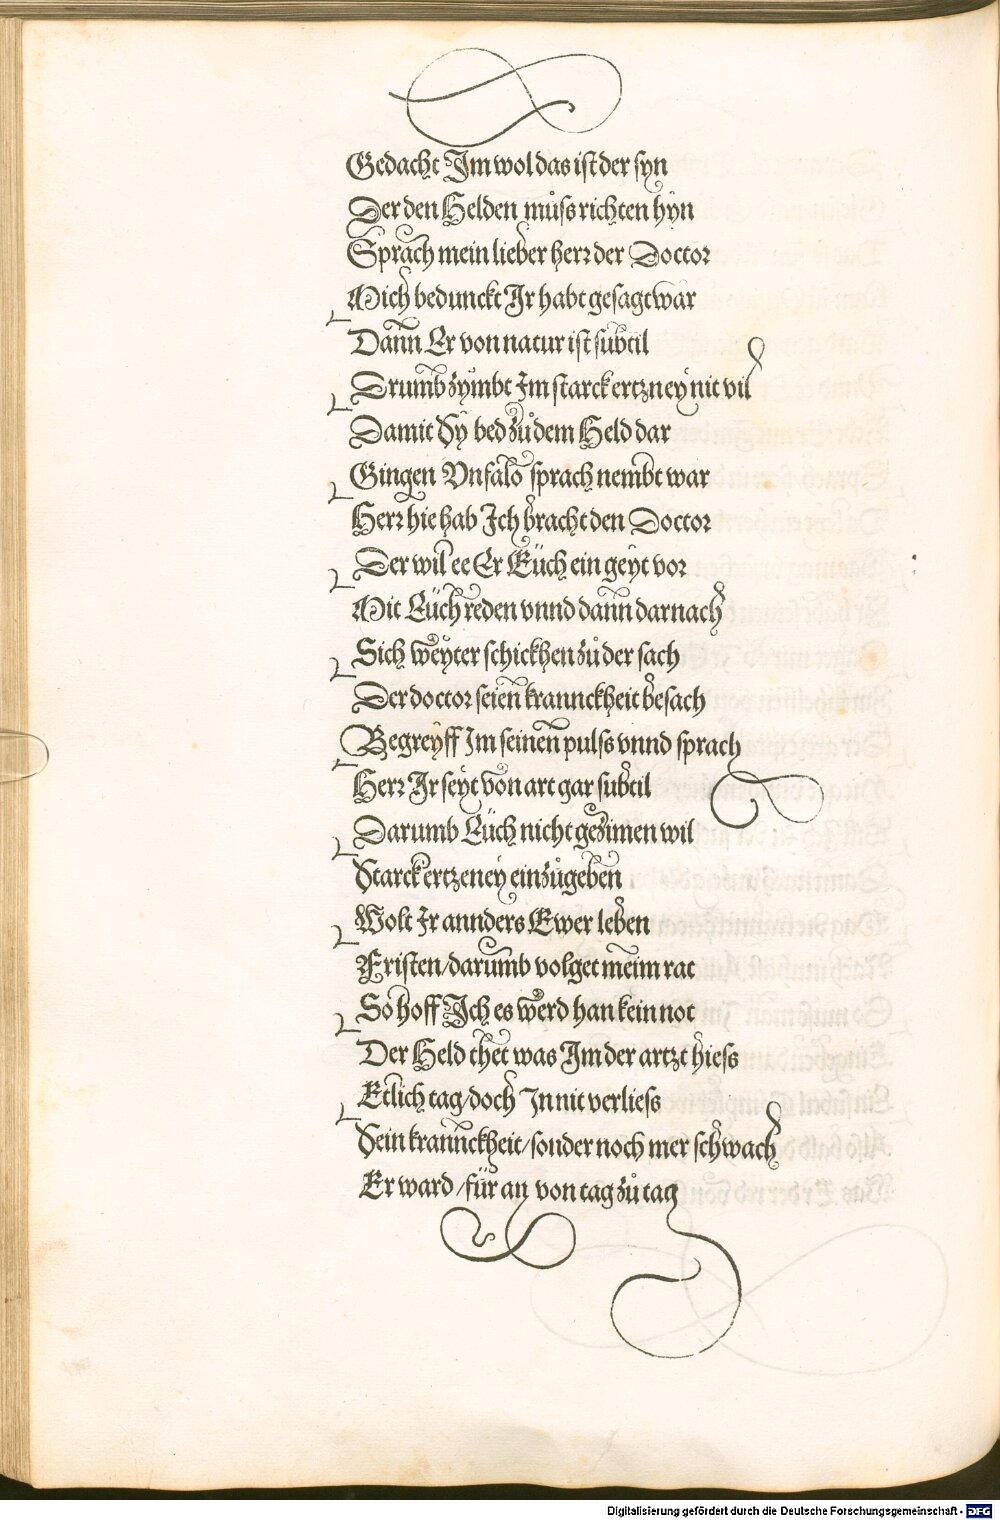 Gedacht Im wol das ist der syn
Der den Helden můſs richten hyn
Sprach mein lieber herr der Doctor
Mich bedunckt Ir habt gesagt war
Dann Er von natur ist subtil
Drumb zymbt Im starck ertzney nit vil
Damit Sy bed zů dem Held dar
Gingen Vnfalo sprach nembt war
Herr hie hab Ich bracht den Doctor
Der wil ee Er Eüch ein geyt vor
Mit Eüch reden vnnd dann darnach
Sich weyter schickhen zů der sach
Der doctor seien krannckheit besach
Begreyff Im seinen pulſs vnnd sprach
Herr Ir seyt von art gar subtil
Darumb Eüch nicht gezimen wil
Starck ertzeney einzůgeben
Wolt Ir annders Ewer leben
Fristen / darumb volget meim rat
So hoff Ich es werd han kein not
Der Held thet was Im der artzt hieſs
Etlich tag / doch In nit verlieſs
Sein krannckheit / sonder noch mer schwach
Er ward / für an von tag zů tag
Digitalisierung gefördert durch die Deutsche Forschungsgemeinschaft - DFG